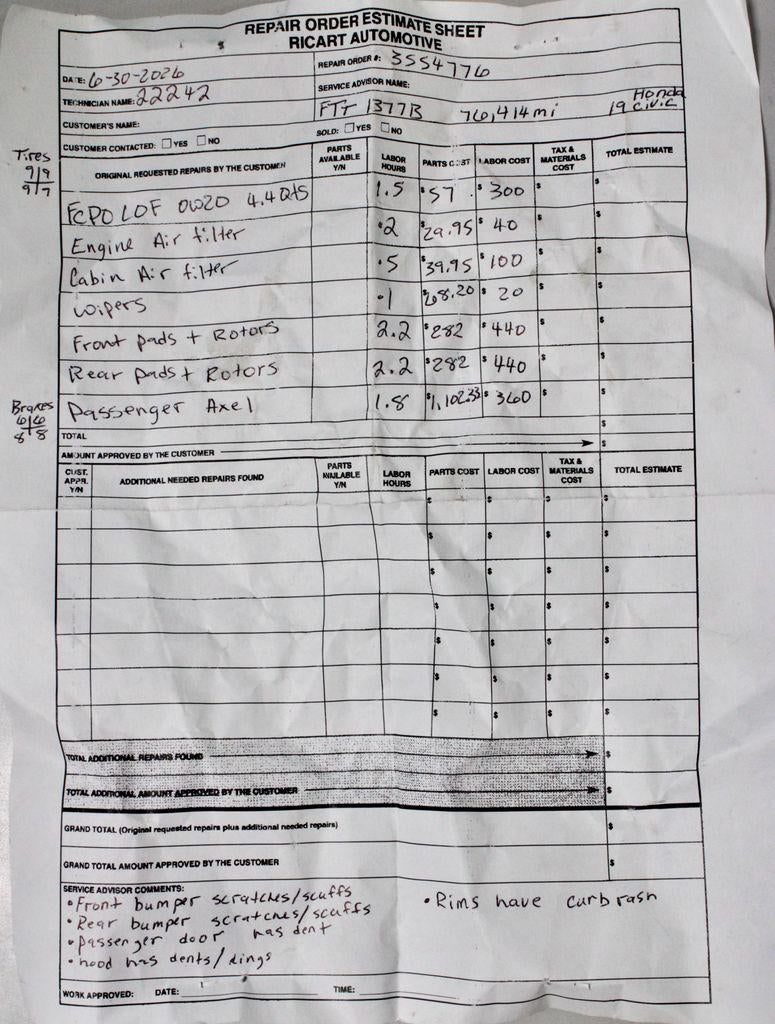 REPAIR ORDER ESTIMATE SHEET
RICART AUTOMOTIVE
DATE: 6-30-2026 REPAIR ORDER #: 3554776
TECHNICIAN NAME: 22242 SERVICE ADVISOR NAME:
CUSTOMER'S NAME: FTT 1377B 76,414mi 19 Honda Civic
CUSTOMER CONTACTED: YES NO SOLD: YES NO
Tires
9|9
9|7
ORIGINAL REQUESTED REPAIRS BY THE CUSTOMER PARTS AVAILABLE Y/N LABOR HOURS PARTS COST LABOR COST TAX & MATERIALS COST TOTAL ESTIMATE
FCPO LOF 0W20 4.4 Qts 1.5 $57 $300 $ $
Engine Air filter .2 $29.95 $40 $ $
Cabin Air filter .5 $39.95 $100 $ $
wipers .1 $68.20 $20 $ $
Front pads + Rotors 2.2 $282 $440 $ $
Rear pads + Rotors 2.2 $282 $440 $ $
Passenger Axel 1.8 $1,102.33 $360 $ $
Brakes
6|6
8|8
TOTAL $
AMOUNT APPROVED BY THE CUSTOMER $
CUST. APPR. Y/N ADDITIONAL NEEDED REPAIRS FOUND PARTS AVAILABLE Y/N LABOR HOURS PARTS COST LABOR COST TAX & MATERIALS COST TOTAL ESTIMATE
$ $ $ $
$ $ $ $
$ $ $ $
$ $ $ $
$ $ $ $
$ $ $ $
$ $ $ $
TOTAL ADDITIONAL REPAIRS FOUND $
TOTAL ADDITIONAL AMOUNT APPROVED BY THE CUSTOMER $
GRAND TOTAL (Original requested repairs plus additional needed repairs) $
GRAND TOTAL AMOUNT APPROVED BY THE CUSTOMER $
SERVICE ADVISOR COMMENTS:
• Front bumper scratches/scuffs • Rims have curb rash
• Rear bumper scratches/scuffs
• passenger door has dent
• hood has dents/dings
WORK APPROVED: DATE: TIME: